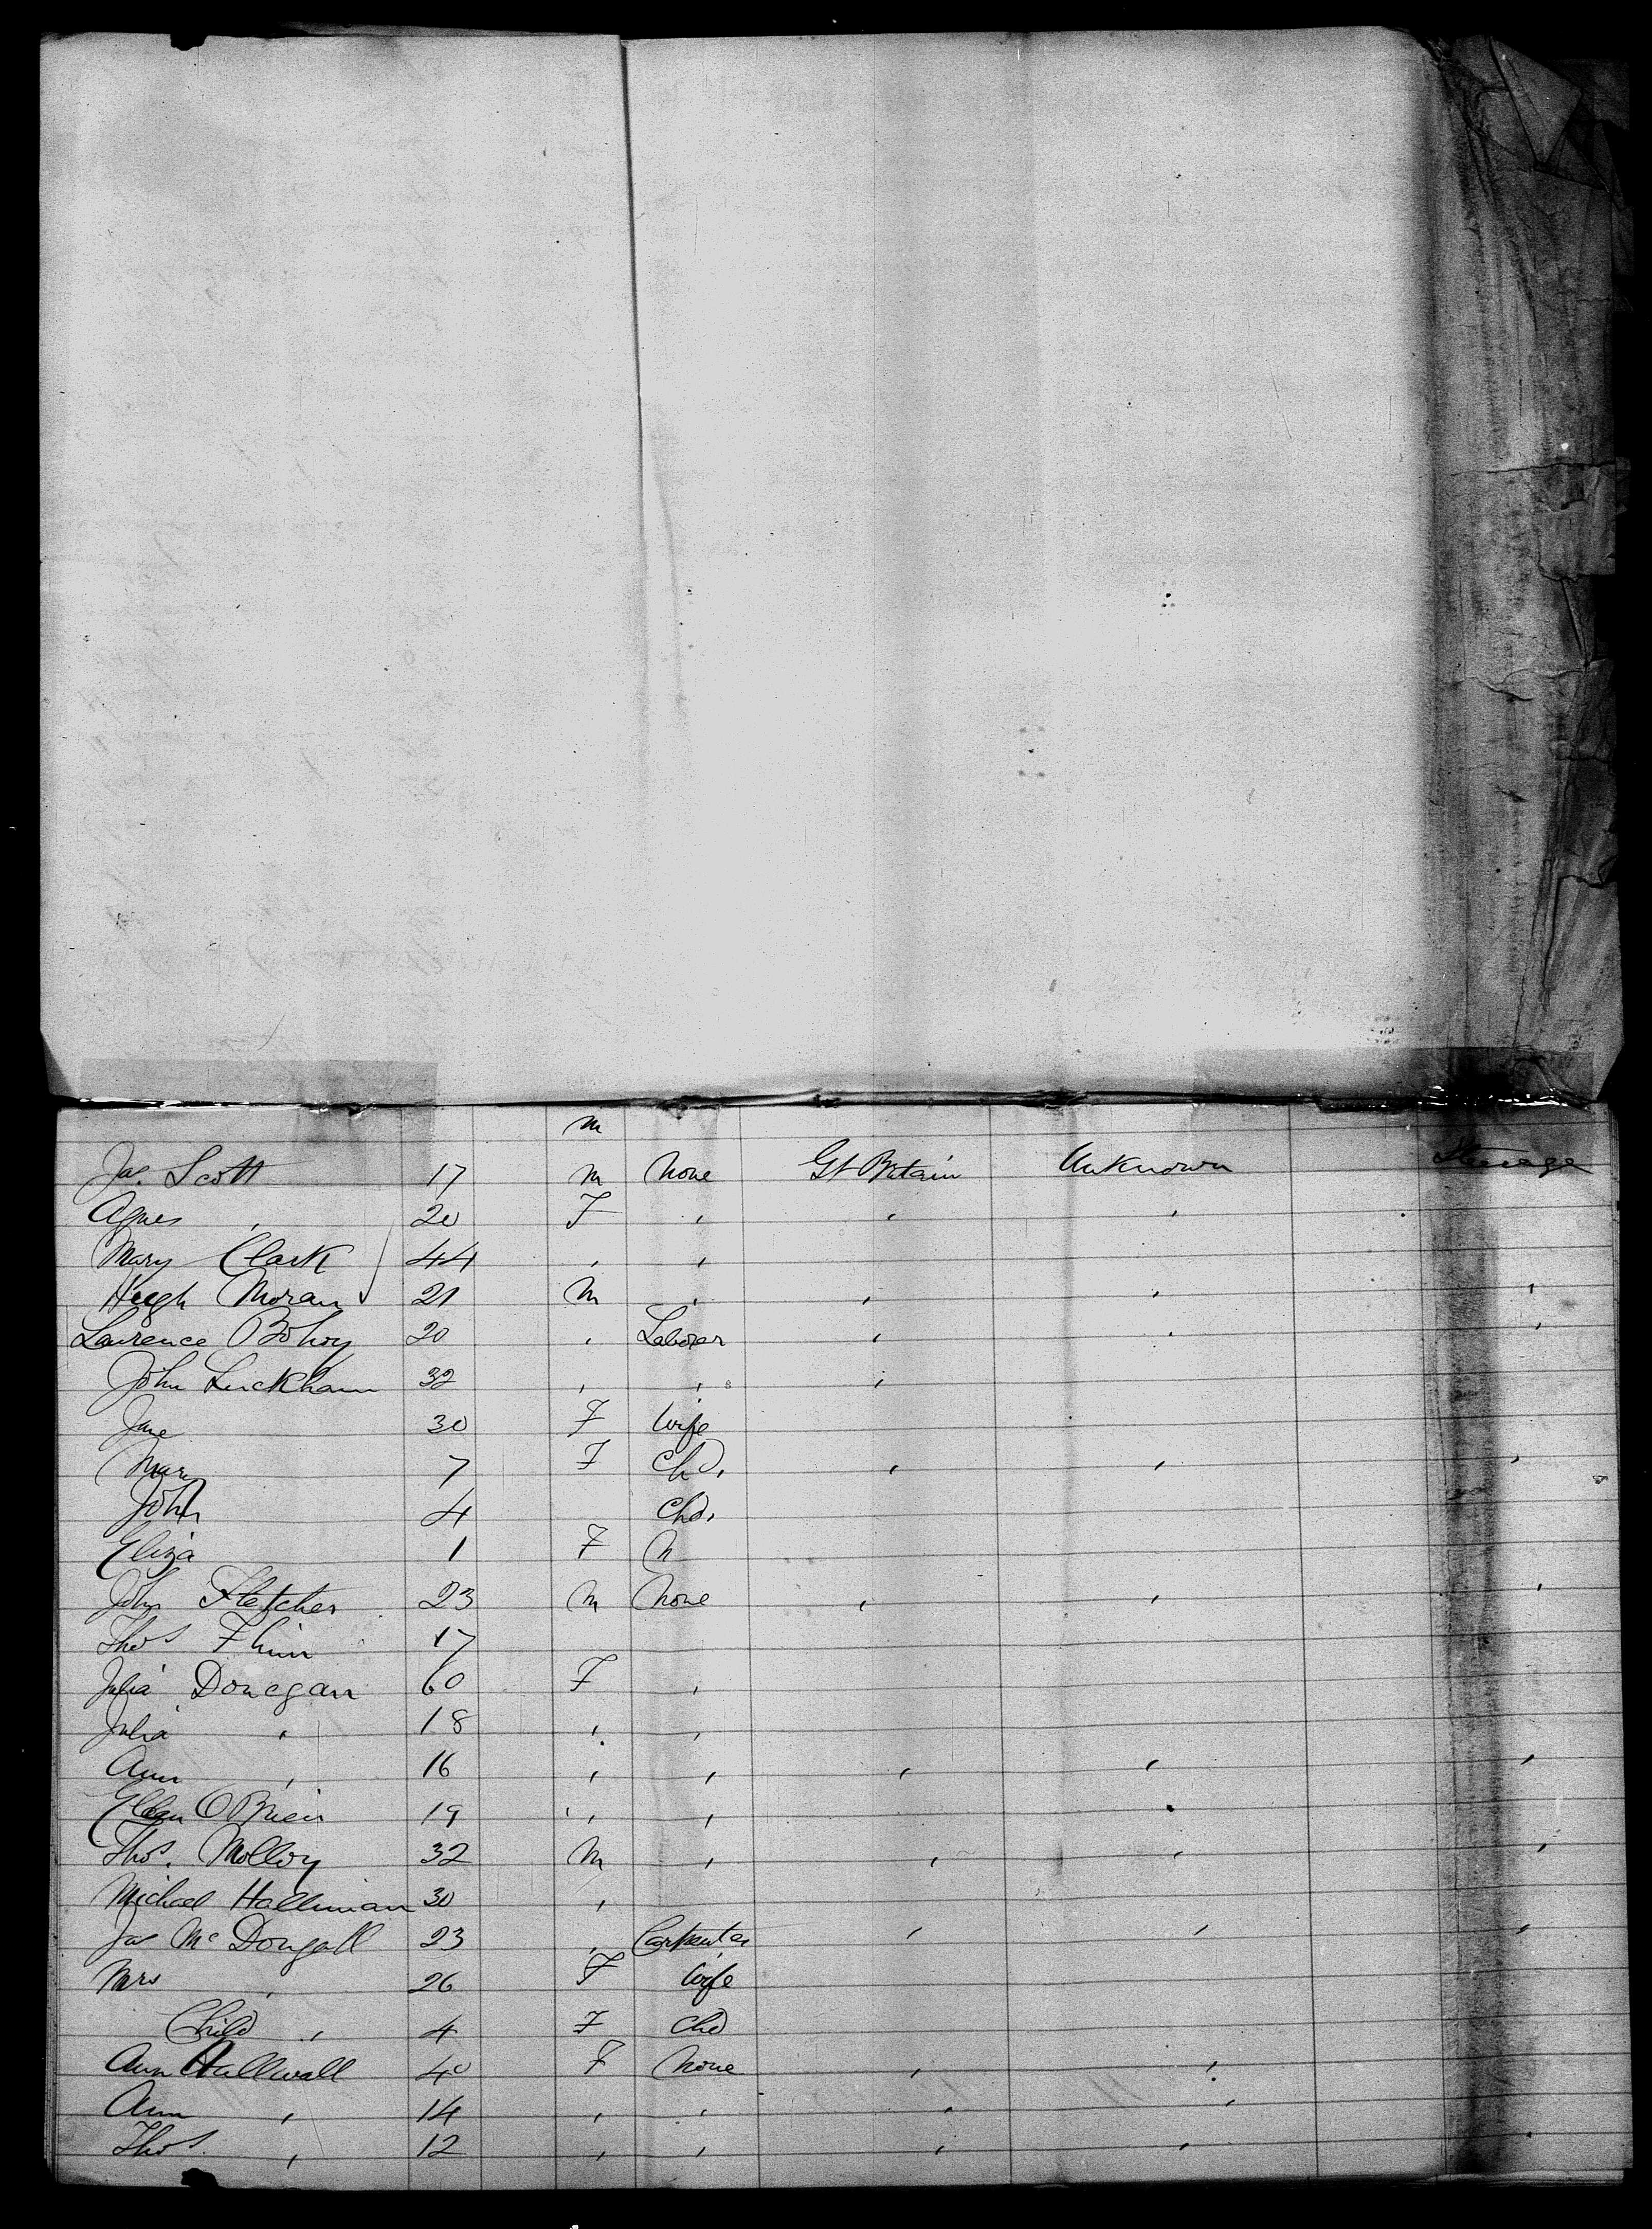 m
Jas. Scott 17 m None Gt Britain Unknown Steerage
Agnes , 20 F , , ,
Mary Clark 44 , ,
Hugh Moran 21 m , , , ,
Laurence Bohoy 20 , Laborer , , ,
John Luckham 32 , , ,
Jane 30 F Wife
Mary 7 F Chd. , , ,
John 4 Chd.
Eliza 1 F n
John Fletcher 23 m None , , ,
Thos Flinn 17
Julia Donegan 60 F ,
Julia , 18 , ,
Ann , 16 , , , , ,
Ellen OBrien 19 , ,
Thos. Molloy 32 m , , , ,
Michael Hallinan 30 ,
Jas McDongall 23 , Carpenter , , ,
Mrs , 26 F Wife
Child , 4 F Chd
Ann Hallwall 40 F None , ,
Ann , 14 , , , ,
Thos , 12 , , , ,